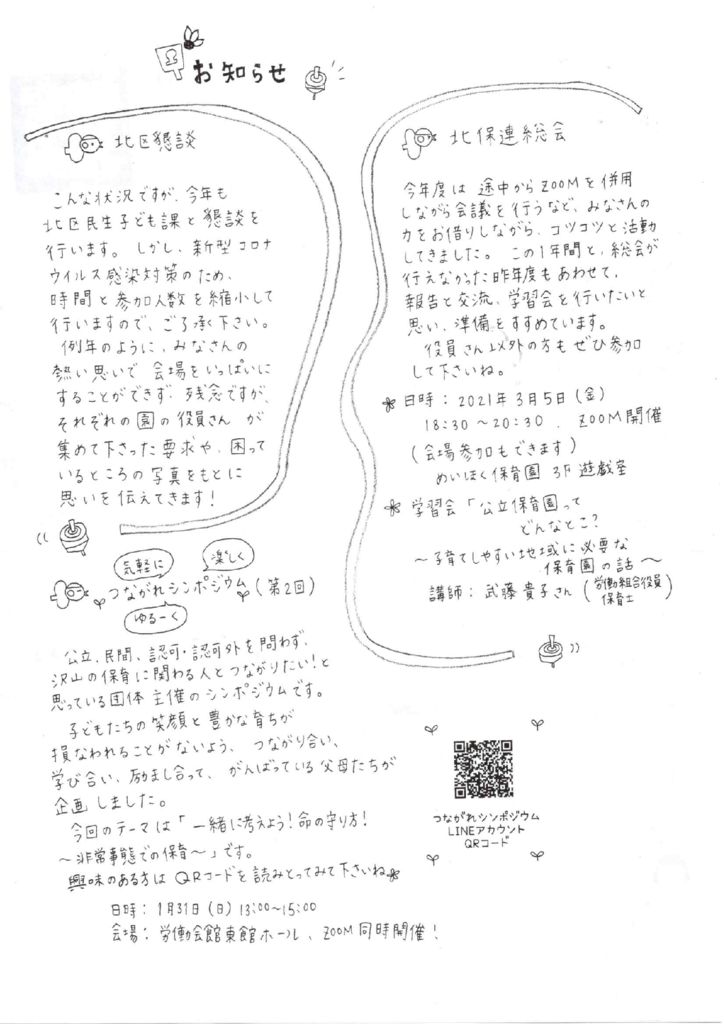 お知らせ
北区懇談
こんな状況ですが、今年も
北区民生子ども課と懇談を
行います。しかし、新型コロナ
ウイルス感染対策のため、
時間と参加人数を縮小して
行いますので、ご了承下さい。
例年のように、みなさんの
熱い思いで会場をいっぱいに
することができず、残念ですが、
それぞれの園の役員さんが
集めて下さった要求や、困って
いるところの写真をもとに
思いを伝えてきます！
北保連総会
今年度は途中からZOOMを併用
しながら会議を行うなど、みなさんの
力をお借りしながら、コツコツと活動
してきました。この1年間と、総会が
行えなかった昨年度もあわせて、
報告と交流、学習会を行いたいと
思い、準備をすすめています。
役員さん以外の方もぜひ参加
して下さいね。
日時：2021年3月5日（金）
18:30～20:30、ZOOM開催
（会場参加もできます）
めいほく保育園 3F 遊戯室
学習会「公立保育園って
どんなとこ？
～子育てしやすい地域に必要な
保育園の話～
講師：武藤貴子さん（労働組合役員
保育士）
気軽に
楽しく
つながれシンポジウム（第2回）
ゆるーく
公立、民間、認可・認可外を問わず、
沢山の保育に関わる人とつながりたい！と
思っている団体主催のシンポジウムです。
子どもたちの笑顔と豊かな育ちが
損なわれることがないよう、つながり合い、
学び合い、励まし合って、がんばっている父母たちが
企画しました。
今回のテーマは「一緒に考えよう！命の守り方！
～非常事態での保育～」です。
興味のある方はQRコードを読みとってみて下さいね
日時：1月31日（日）13:00～15:00
会場：労働会館東館ホール、ZOOM同時開催！
つながれシンポジウム
LINEアカウント
QRコード